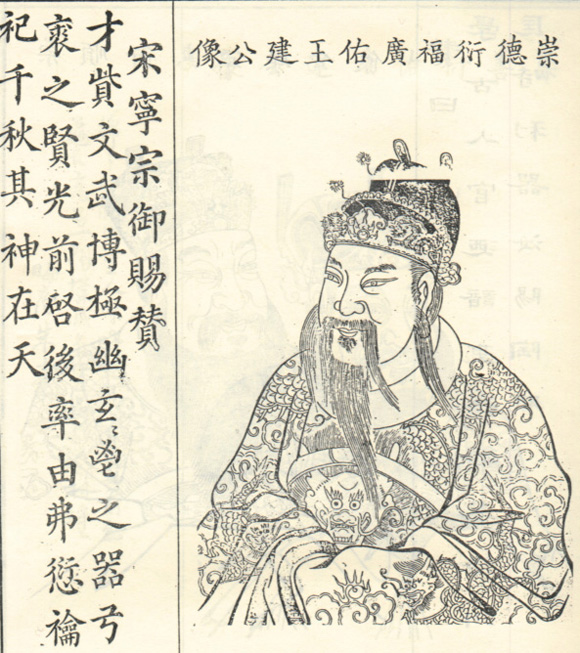 崇德衍福廣佑王建公像
宋寧宗御賜贊
才貲文武博極幽玄之器
之賢光前啓後率由弗愆禴
祀千秋其神在天